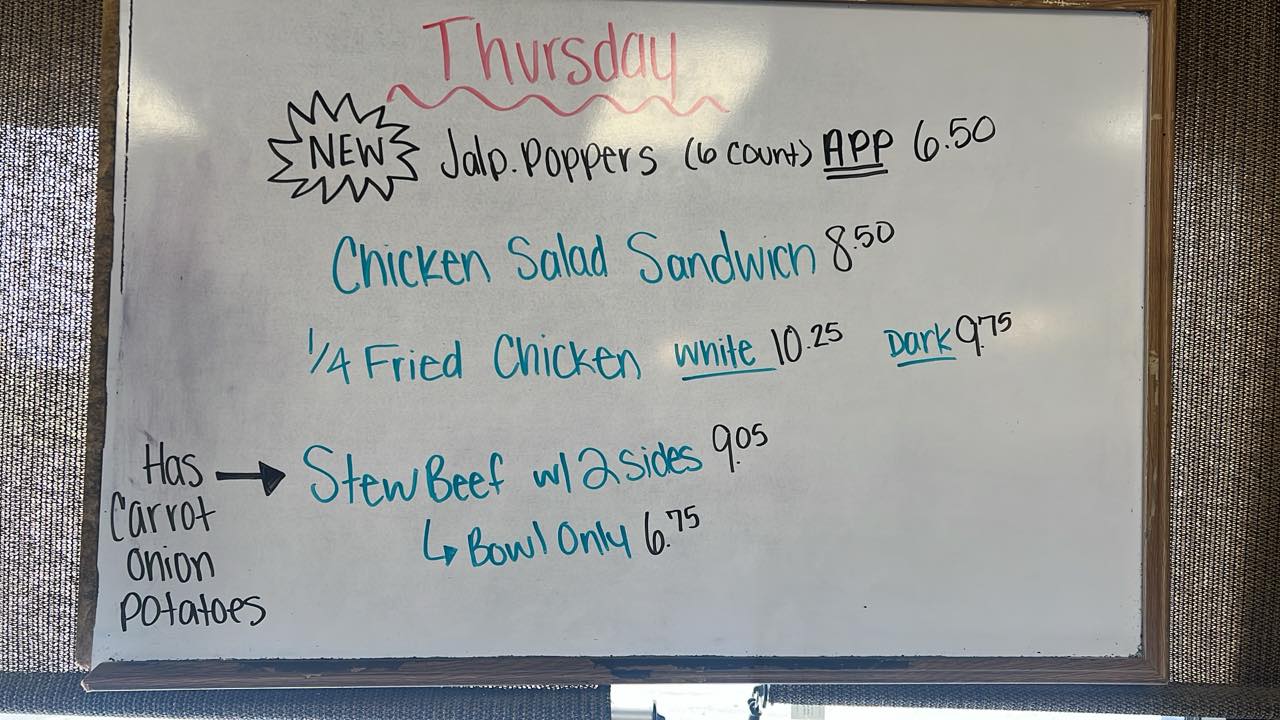 Thursday
NEW Jalp. Poppers (6 count) APP 6.50
Chicken Salad Sandwich 8.50
1/4 Fried Chicken White 10.25 Dark 9.75
Has → Stew Beef w/ 2 sides 9.05
Carrot
↳ Bowl Only 6.75
Onion
Potatoes